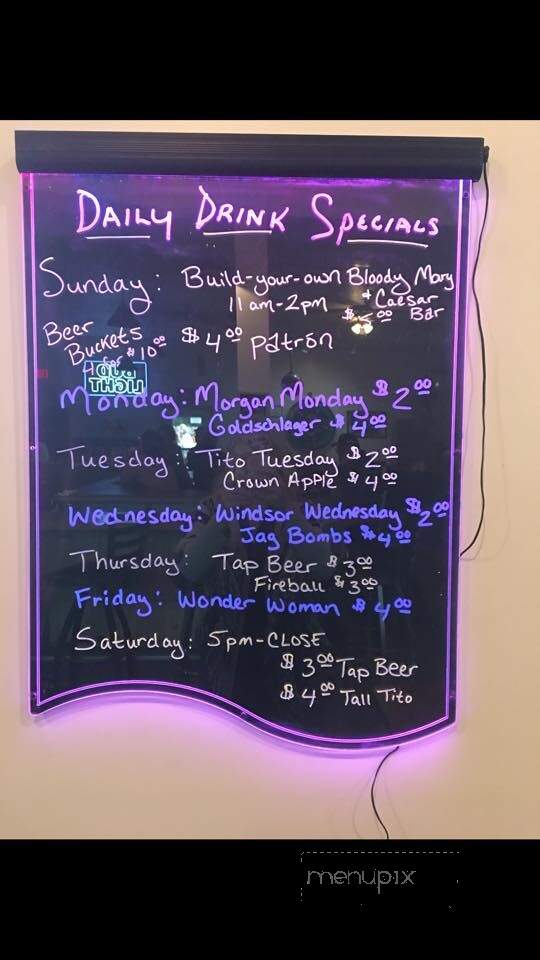 DAILY DRINK SPECIALS
Sunday: Build-your-own Bloody Mary
11am-2pm & Caesar
Bar
Beer
Buckets $4.00 Patrón
4 for $10.00
Monday: Morgan Monday $2.00
Goldschlager $4.00
Tuesday: Tito Tuesday $2.00
Crown Apple $4.00
Wednesday: Windsor Wednesday $2.00
Jag Bombs $4.00
Thursday: Tap Beer $3.00
Fireball $3.00
Friday: Wonder Woman $4.00
Saturday: 5pm-CLOSE
$3.00 Tap Beer
$4.00 Tall Tito
menupix